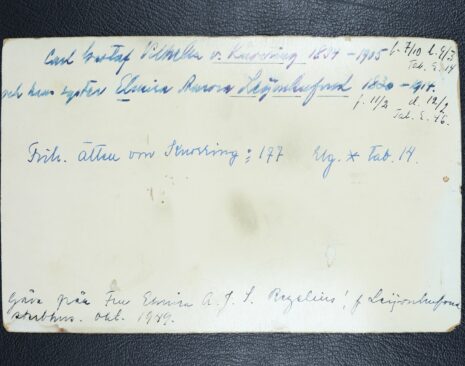 Carl Gustaf Vilhelm v. Knorring 1834 – 1905 f. 7/10 d. 9/3
Tab. E. 14
och hans syster Elmira Aurora Leijonhufvud 1830 – 191
f. 11/2 d. 12/2
Tab. E. 46.
Frih. Ätten von Knorring: 177 Elg. * Tab. 14.
Gåva från Fru Elmira A. J. S. Regelius', f Leijonhufvud
sterbhus. Okt. 1949.